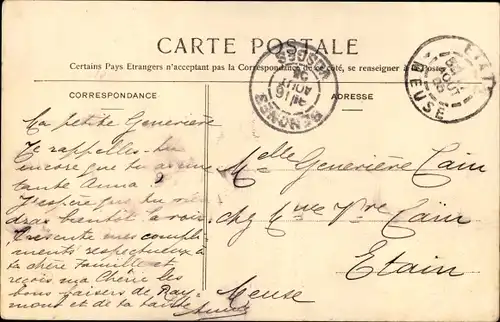 CARTE POSTALE
Certains Pays Etrangers n'acceptant pas la Correspondance de ce côté, se renseigner à la Poste
CORRESPONDANCE
ADRESSE
VOSGES
AOUT
SENONES
ETAIN
AOUT
MEUSE
Ma petite Geneviève
Te rappelles-tu
encore que tu as une
tante Anna ?
J'espère que tu vien
dras bientôt la voir.
Présente mes compli
ments respectueux à
ta chère famille et
reçois ma Chérie les
bons baisers de Ray-
mond et de ta tante
Anna
Melle Geneviève Cain
chez Mme Vve Caïn
Etain
Meuse